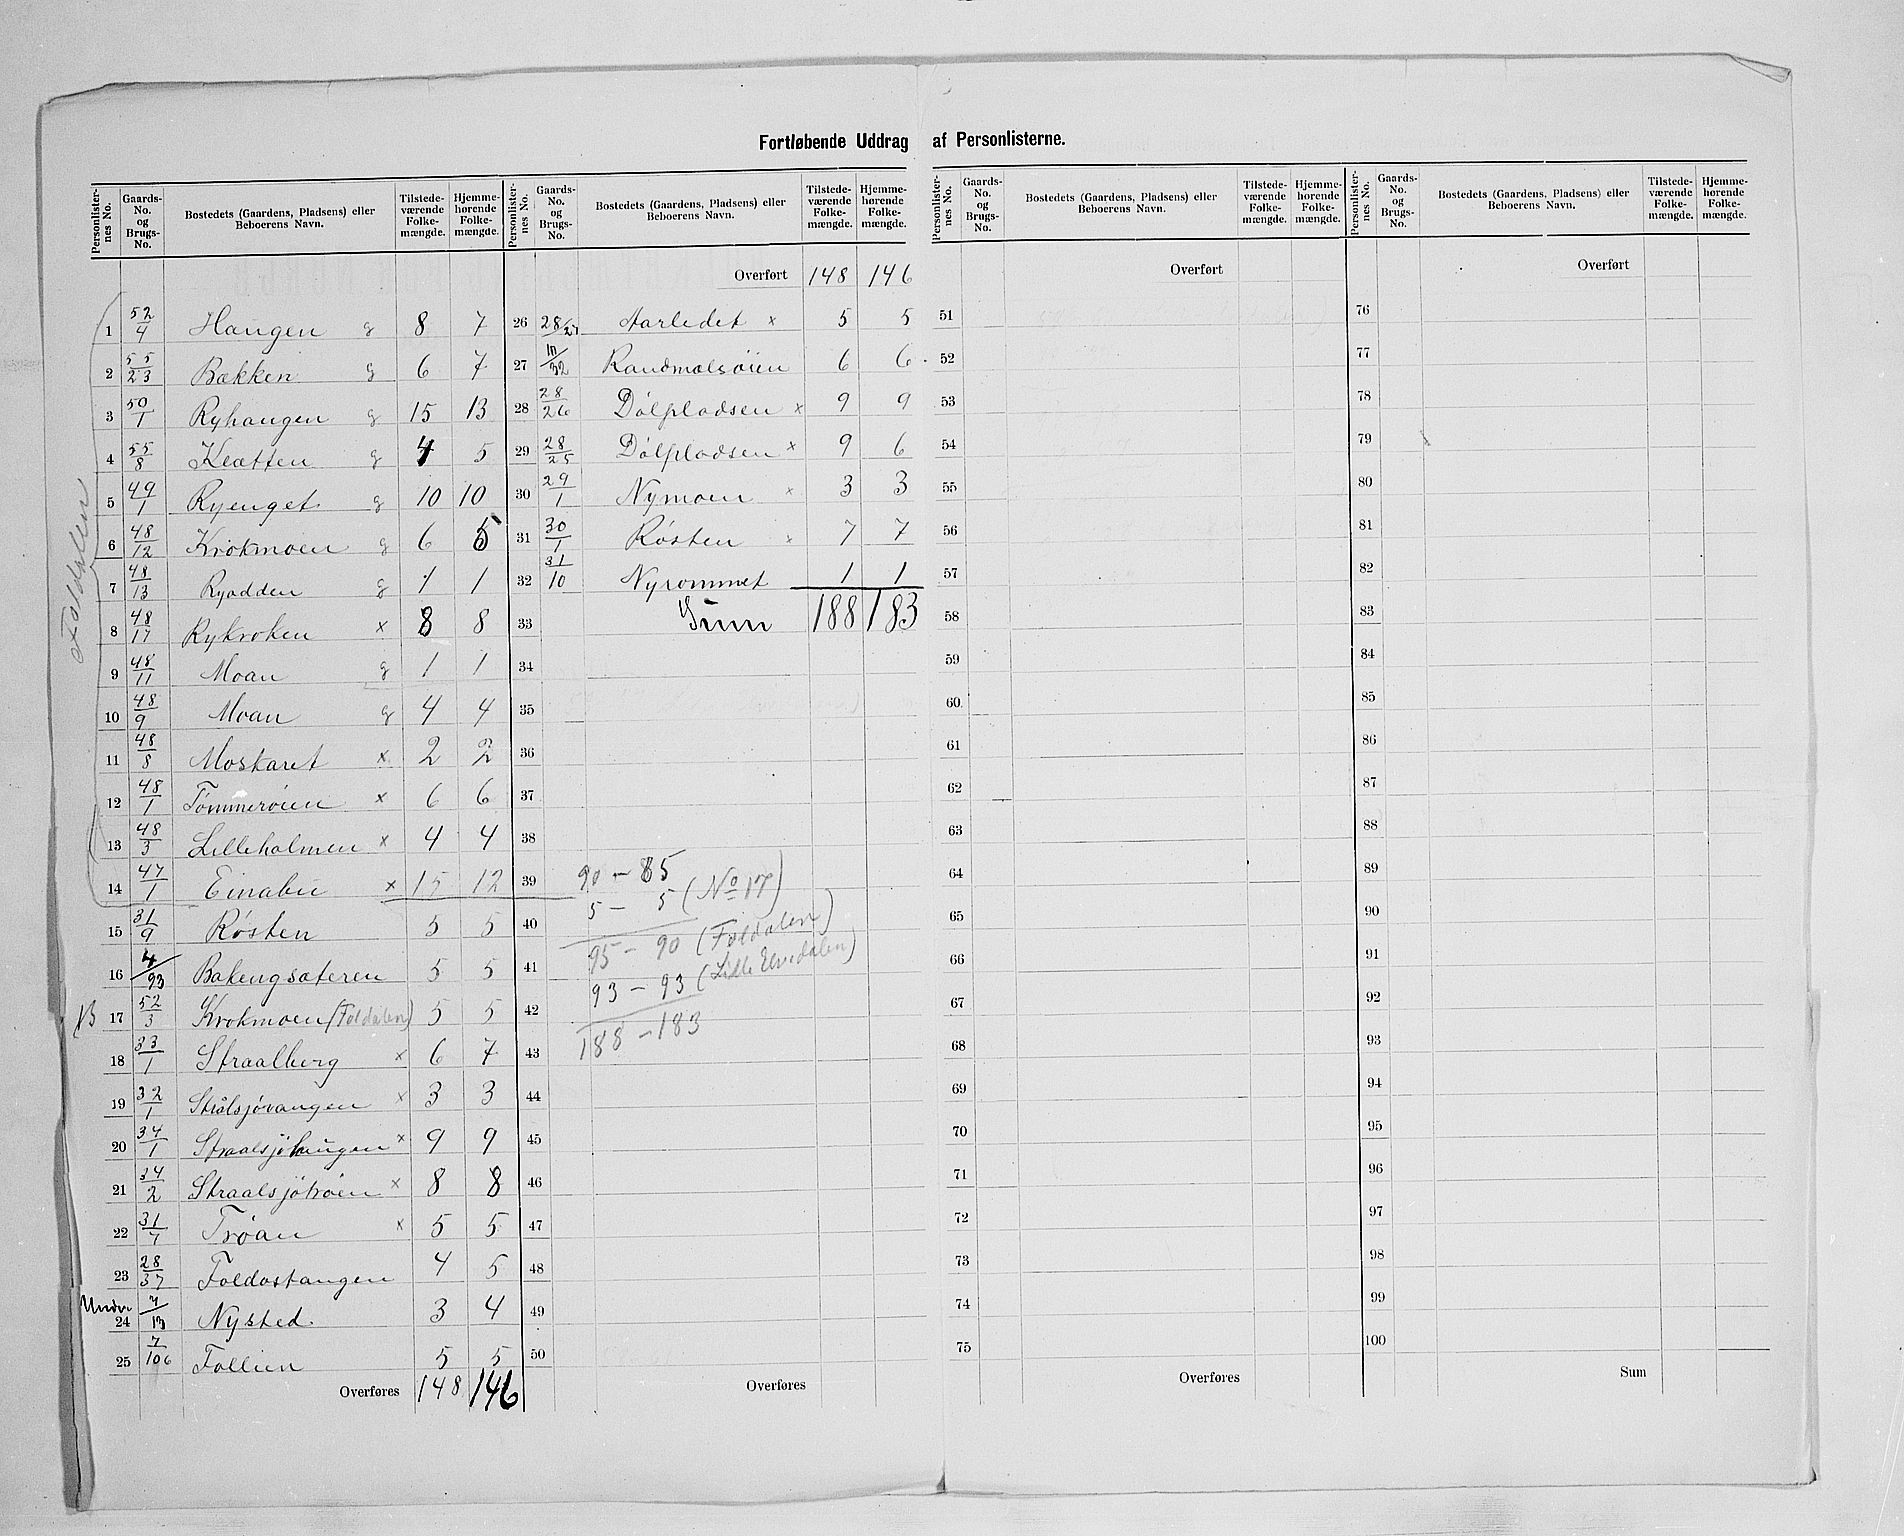 Fortløbende Uddrag af Personlisterne.
Personlisternes No. | Gaards-No. og Brugs-No. | Bostedets (Gaardens, Pladsens) eller Beboerens Navn. | Tilstedeværende Folkemængde. | Hjemmehørende Folkemængde.
Foldalen
1 52/4 Haugen g 8 7
2 55/23 Bækken g 6 7
3 50/1 Ryhaugen g 15 13
4 55/8 Klætten g 4 5
5 49/1 Ryenget g 10 10
6 48/12 Krokmoen g 6 5
7 48/13 Ryodden g 1 1
8 48/17 Rykroken x 8 8
9 48/11 Moan g 1 1
10 48/9 Moan g 4 4
11 48/8 Moskaret x 2 2
12 48/1 Tømmerøien x 6 6
13 48/3 Lilleholmen x 4 4
14 47/1 Einabu x 15 12
15 31/9 Røsten 5 5
16 4/93 Bakengsæteren 5 5
NB 17 52/3 Krokmoen (Foldalen) 5 5
18 33/1 Straalberg x 6 7
19 32/1 Strålsjøvangen x 3 3
20 34/1 Straalsjøhaugen x 9 9
21 34/2 Straalsjøtrøen x 8 8
22 31/7 Trøan x 5 5
23 28/37 Foldostangen 4 5
24 7/13 Nysted 3 4
25 7/106 Follien 5 5
Overføres 148 146
Personlisternes No. | Gaards-No. og Brugs-No. | Bostedets (Gaardens, Pladsens) eller Beboerens Navn. | Tilstedeværende Folkemængde. | Hjemmehørende Folkemængde.
Overført 148 146
26 28/27 Aarledet x 5 5
27 /32 Randmælsøien 6 6
28 28/26 Dølpladsen x 9 9
29 28/25 Dølpladsen x 9 6
30 29/1 Nymoen x 3 3
31 30/1 Røsten x 7 7
32 31/10 Nyrommet 1 1
33 Sum 188 183
34
35
36
37
38
39 90 - 85
40 5 - 5 (No 17)
41 95 - 90 (Foldalen)
42 93 - 93 (Lille Elvedalen)
43 188 - 183
44
45
46
47
48
49
50
Overføres
Personlisternes No. | Gaards-No. og Brugs-No. | Bostedets (Gaardens, Pladsens) eller Beboerens Navn. | Tilstedeværende Folkemængde. | Hjemmehørende Folkemængde.
Overført
51
52
53
54
55
56
57
58
59
60
61
62
63
64
65
66
67
68
69
70
71
72
73
74
75
Overføres
Personlisternes No. | Gaards-No. og Brugs-No. | Bostedets (Gaardens, Pladsens) eller Beboerens Navn. | Tilstedeværende Folkemængde. | Hjemmehørende Folkemængde.
Overført
76
77
78
79
80
81
82
83
84
85
86
87
88
89
90
91
92
93
94
95
96
97
98
99
100
Sum